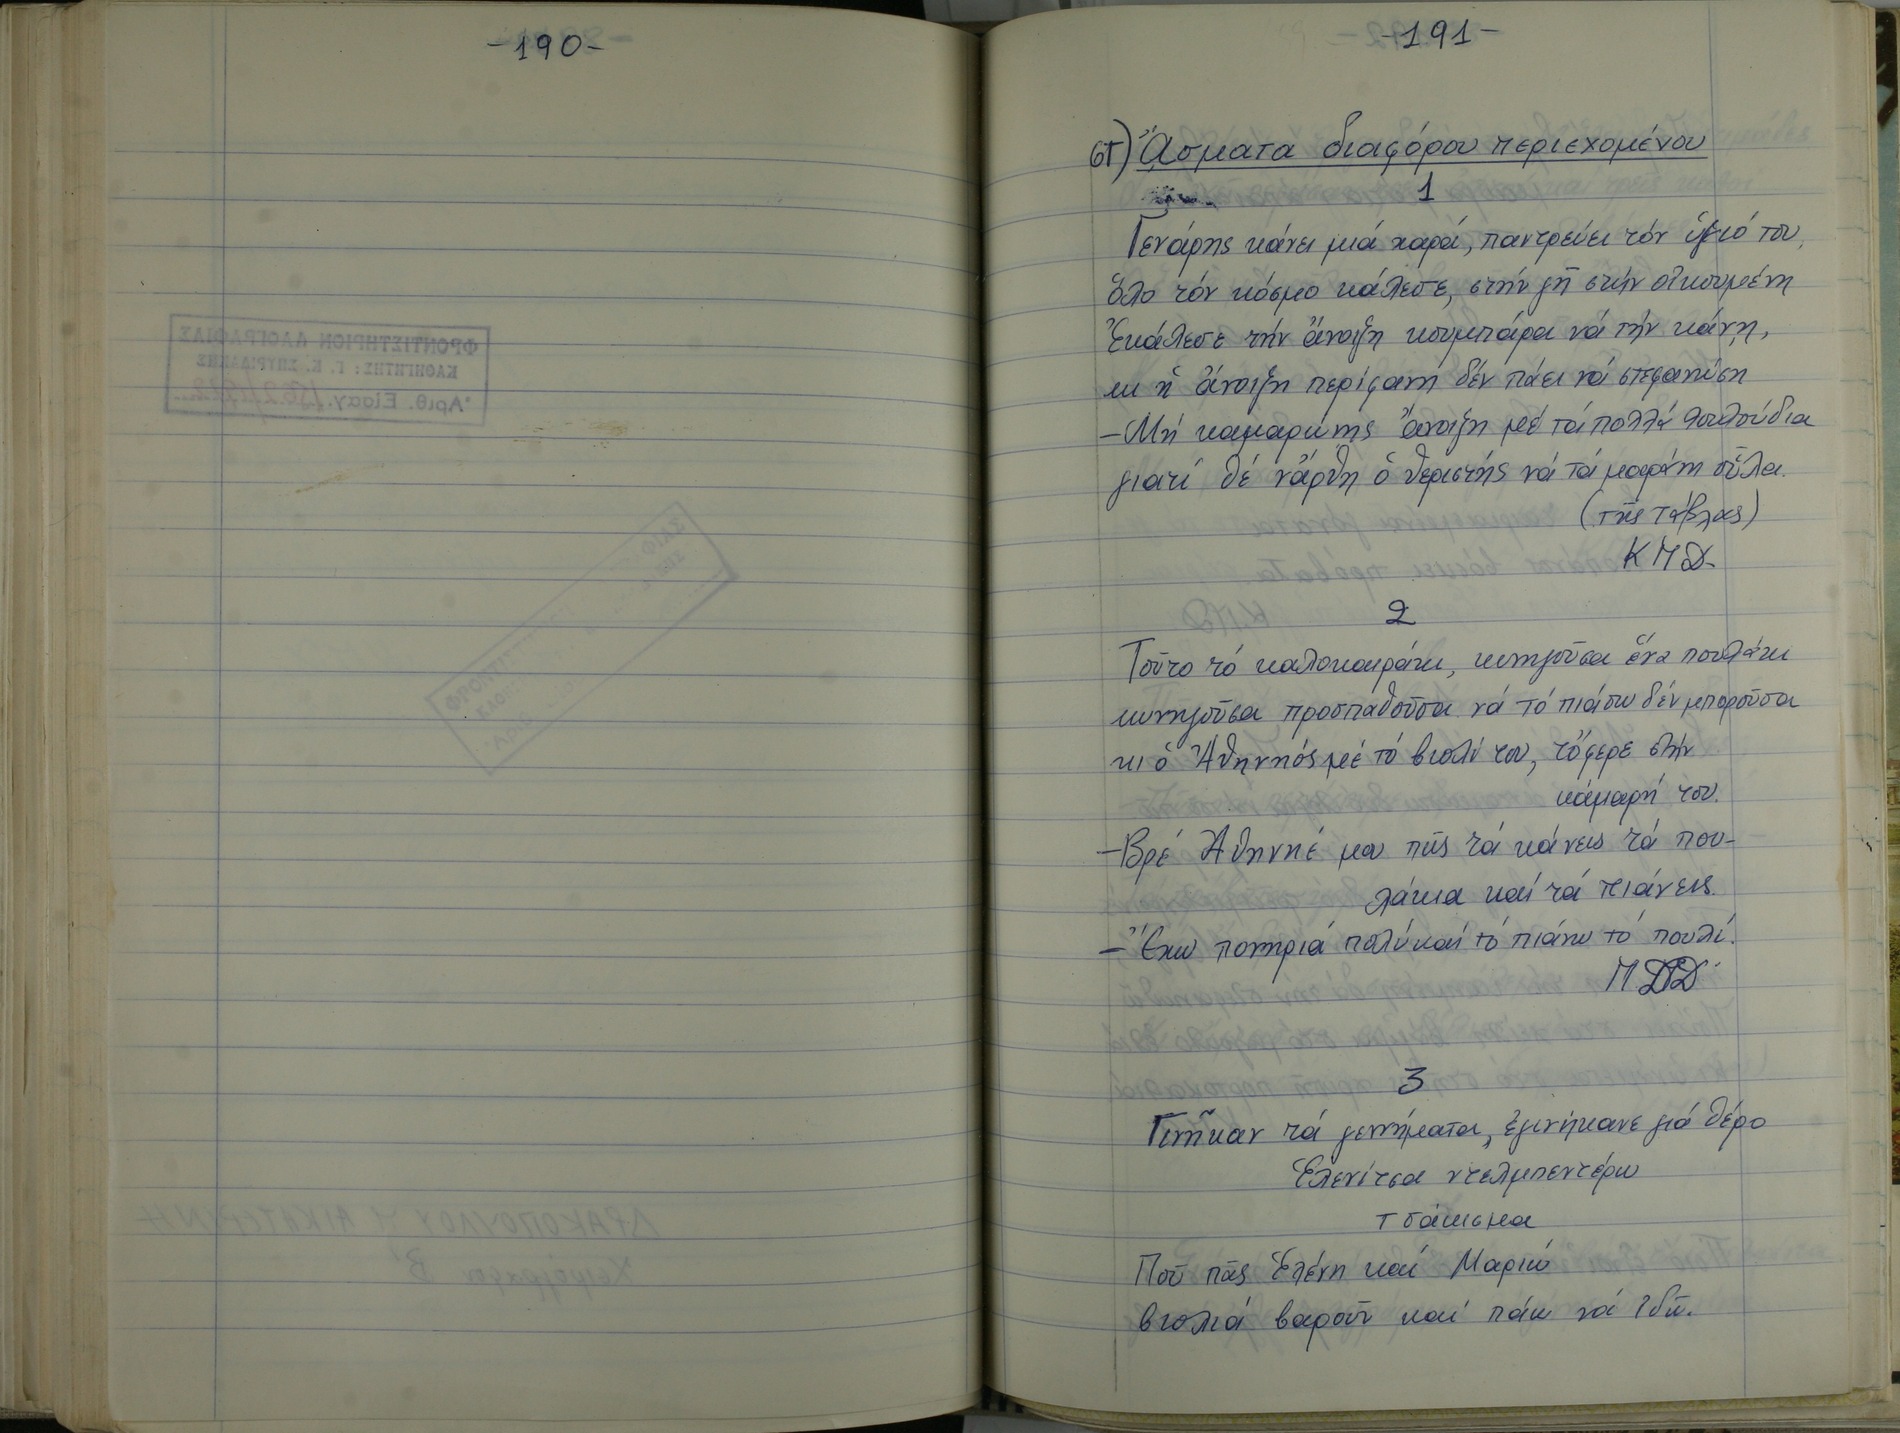 -190-
-191-
στ) Ἄσματα διαφόρου περιεχομένου
1
Γενάρης κάνει μιά χαρά, παντρεύει τόν ὑγιό του,
ὅλο τόν κόσμο κάλεσε, στήν γῆ στήν οἰκουμένη
Ἐκάλεσε τήν ἄνοιξη κουμπάρα νά τήν κάνῃ,
κι ἡ ἄνοιξη περίφανη δέν πάει νά στεφανώση
-Μή καμαρώνης ἄνοιξη μέ τά πολλά λουλούδια
γιατί θέ νἄρθη ὁ θεριστής νά τά μαράνη οὗλα.
(τῆς τάβλας)
ΚΠΔ
2
Τοῦτο τό καλοκαιράκι, κυνηγοῦσα ἕνα πουλάκι
κυνηγοῦσα προσπαθοῦσα νά τό πιάσω δέν μποροῦσα
κι ὁ Ἀθηνιός μέ τό βιολί του, τὄφερε στήν
κάμαρή του.
-Βρέ Ἀθηνιέ μου πῶς τά κάνεις τά που-
λάκια καί τά πιάνεις.
-Ἔχω πονηριά πολύ καί τό πιάνω τό πουλί.
3
Γινῆκαν τά γεννήματα, ἐγινήκανε γιά θέρο
Ἑλενίτσα ντελμπεντέρω
τσάκισμα
Ποῦ πᾶς Ἑλένη καί Μαριώ
βιολιά βαροῦν καί πάω νά ἰδῶ.
ΦΡΟΝΤΙΣΤΗΡΙΟΝ ΛΑΟΓΡΑΦΙΑΣ
ΚΑΘΗΓΗΤΗΣ: Γ. Κ. ΣΠΥΡΙΔΑΚΗΣ
Ἀριθ. Εἰσαγ.